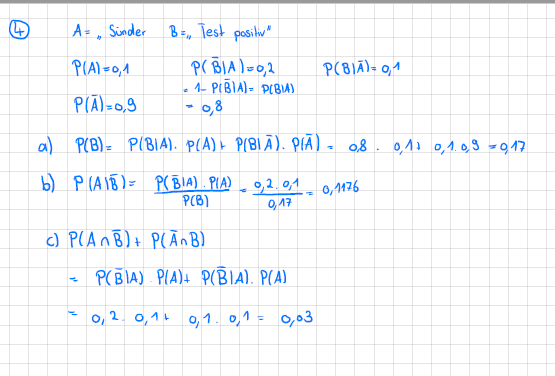 4 A = „ Sünder B = „ Test positiv"
P(A) = 0,1 P(B̄|A) = 0,2 P(B|Ā) = 0,1
= 1 - P(B̄|A) = P(B|A)
P(Ā) = 0,9 = 0,8
a) P(B) = P(B|A) · P(A) + P(B|Ā) · P(Ā) = 0,8 · 0,1 + 0,1 · 0,9 = 0,17
b) P(A|B̄) = P(B̄|A) · P(A) / P(B) = 0,2 · 0,1 / 0,17 = 0,1176
c) P(A ∩ B̄) + P(Ā ∩ B)
= P(B̄|A) · P(A) + P(B̄|A) · P(A)
= 0,2 · 0,1 + 0,1 · 0,1 = 0,03